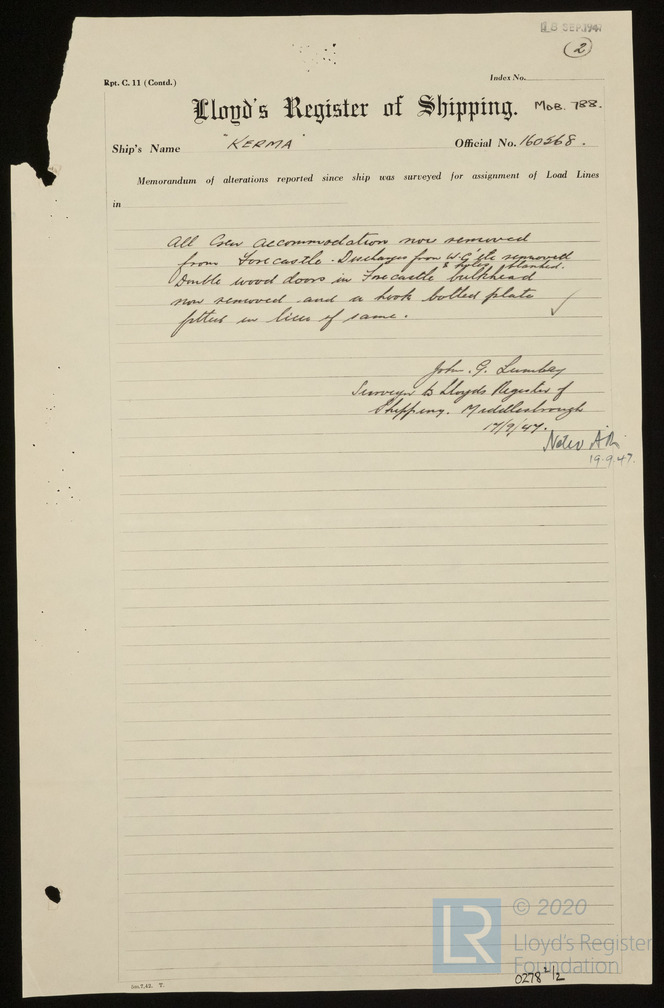 18 SEP 1947
2
Rpt. C. 11 (Contd.)
Index No.
Lloyd's Register of Shipping. MDB. 788.
Ship's Name "KERMA" Official No. 160568.
Memorandum of alterations reported since ship was surveyed for assignment of Load Lines
in
All Crew accommodation now removed
from Forecastle. Discharges from W.C's etc removed
& blanked.
Double wood doors in Forecastle bulkhead
now removed and a hook bolted plate
fitted in lieu of same.
John. G. Lumbey
Surveyor to Lloyds Register of
Shipping. Middlesbrough
17/9/47.
Noted
19.9.47.
© 2020
LR
Lloyd's Register
Foundation
0278 1/2